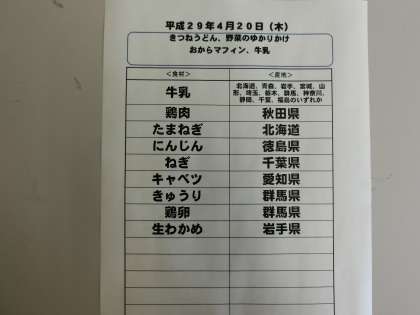 平成29年4月20日（木）
きつねうどん、野菜のゆかりかけ
おからマフィン、牛乳
＜食材＞ ＜産地＞
牛乳 北海道、青森、岩手、宮城、山
形、埼玉、栃木、群馬、神奈川、
静岡、千葉、福島のいずれか
鶏肉 秋田県
たまねぎ 北海道
にんじん 徳島県
ねぎ 千葉県
キャベツ 愛知県
きゅうり 群馬県
鶏卵 群馬県
生わかめ 岩手県